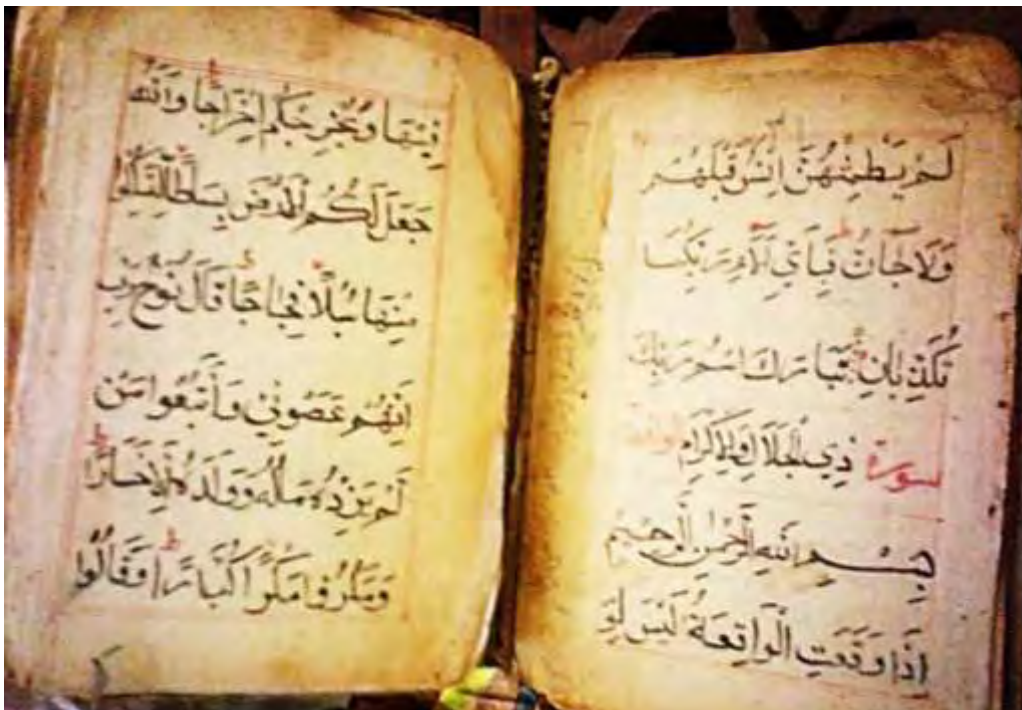 لَمْ يَطْمِثْهُنَّ اِنْسٌ قَبْلَهُمْ
وَلَا جَانٌّ فَبِأَيِّ آلَاءِ رَبِّكُمَا
تُكَذِّبَانِ تَبَارَكَ اسْمُ رَبِّكَ
سورة ذِي الْجَلَالِ وَالْاِكْرَامِ
بِسْمِ اللهِ الرَّحْمٰنِ الرَّحِيْمِ
اِذَا وَقَعَتِ الْوَاقِعَةُ لَيْسَ لِوَ
فِيْهَا وَيُخْرِجُكُمْ اِخْرَاجًا وَاللهُ
جَعَلَ لَكُمُ الْاَرْضَ بِسَاطًا لِتَسْلُكُوا
مِنْهَا سُبُلًا فِجَاجًا قَالَ نُوْحٌ رَبِّ
اِنَّهُمْ عَصَوْنِيْ وَاتَّبَعُوا مَنْ
لَمْ يَزِدْهُ مَالُهُ وَوَلَدُهُ اِلَّا خَسَارًا
وَمَكَرُوا مَكْرًا كُبَّارًا وَقَالُوا